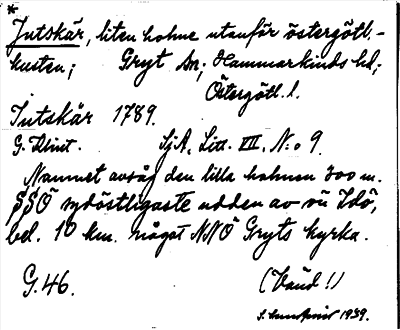 *
Jutskär, liten holme utanför östergötl.-
kusten; Gryt sn; Hammarkinds hd;
Östergötl. l.
Jutskär 1789.
G. Klint. SjA, Litt. VII, N:o 9.
Namnet avsåg den lilla holmen 300 m.
SSÖ sydöstligaste udden av ön Idö,
bel. 10 km. något NNÖ Gryts kyrka.
G. 46. (Vänd!)
1939.